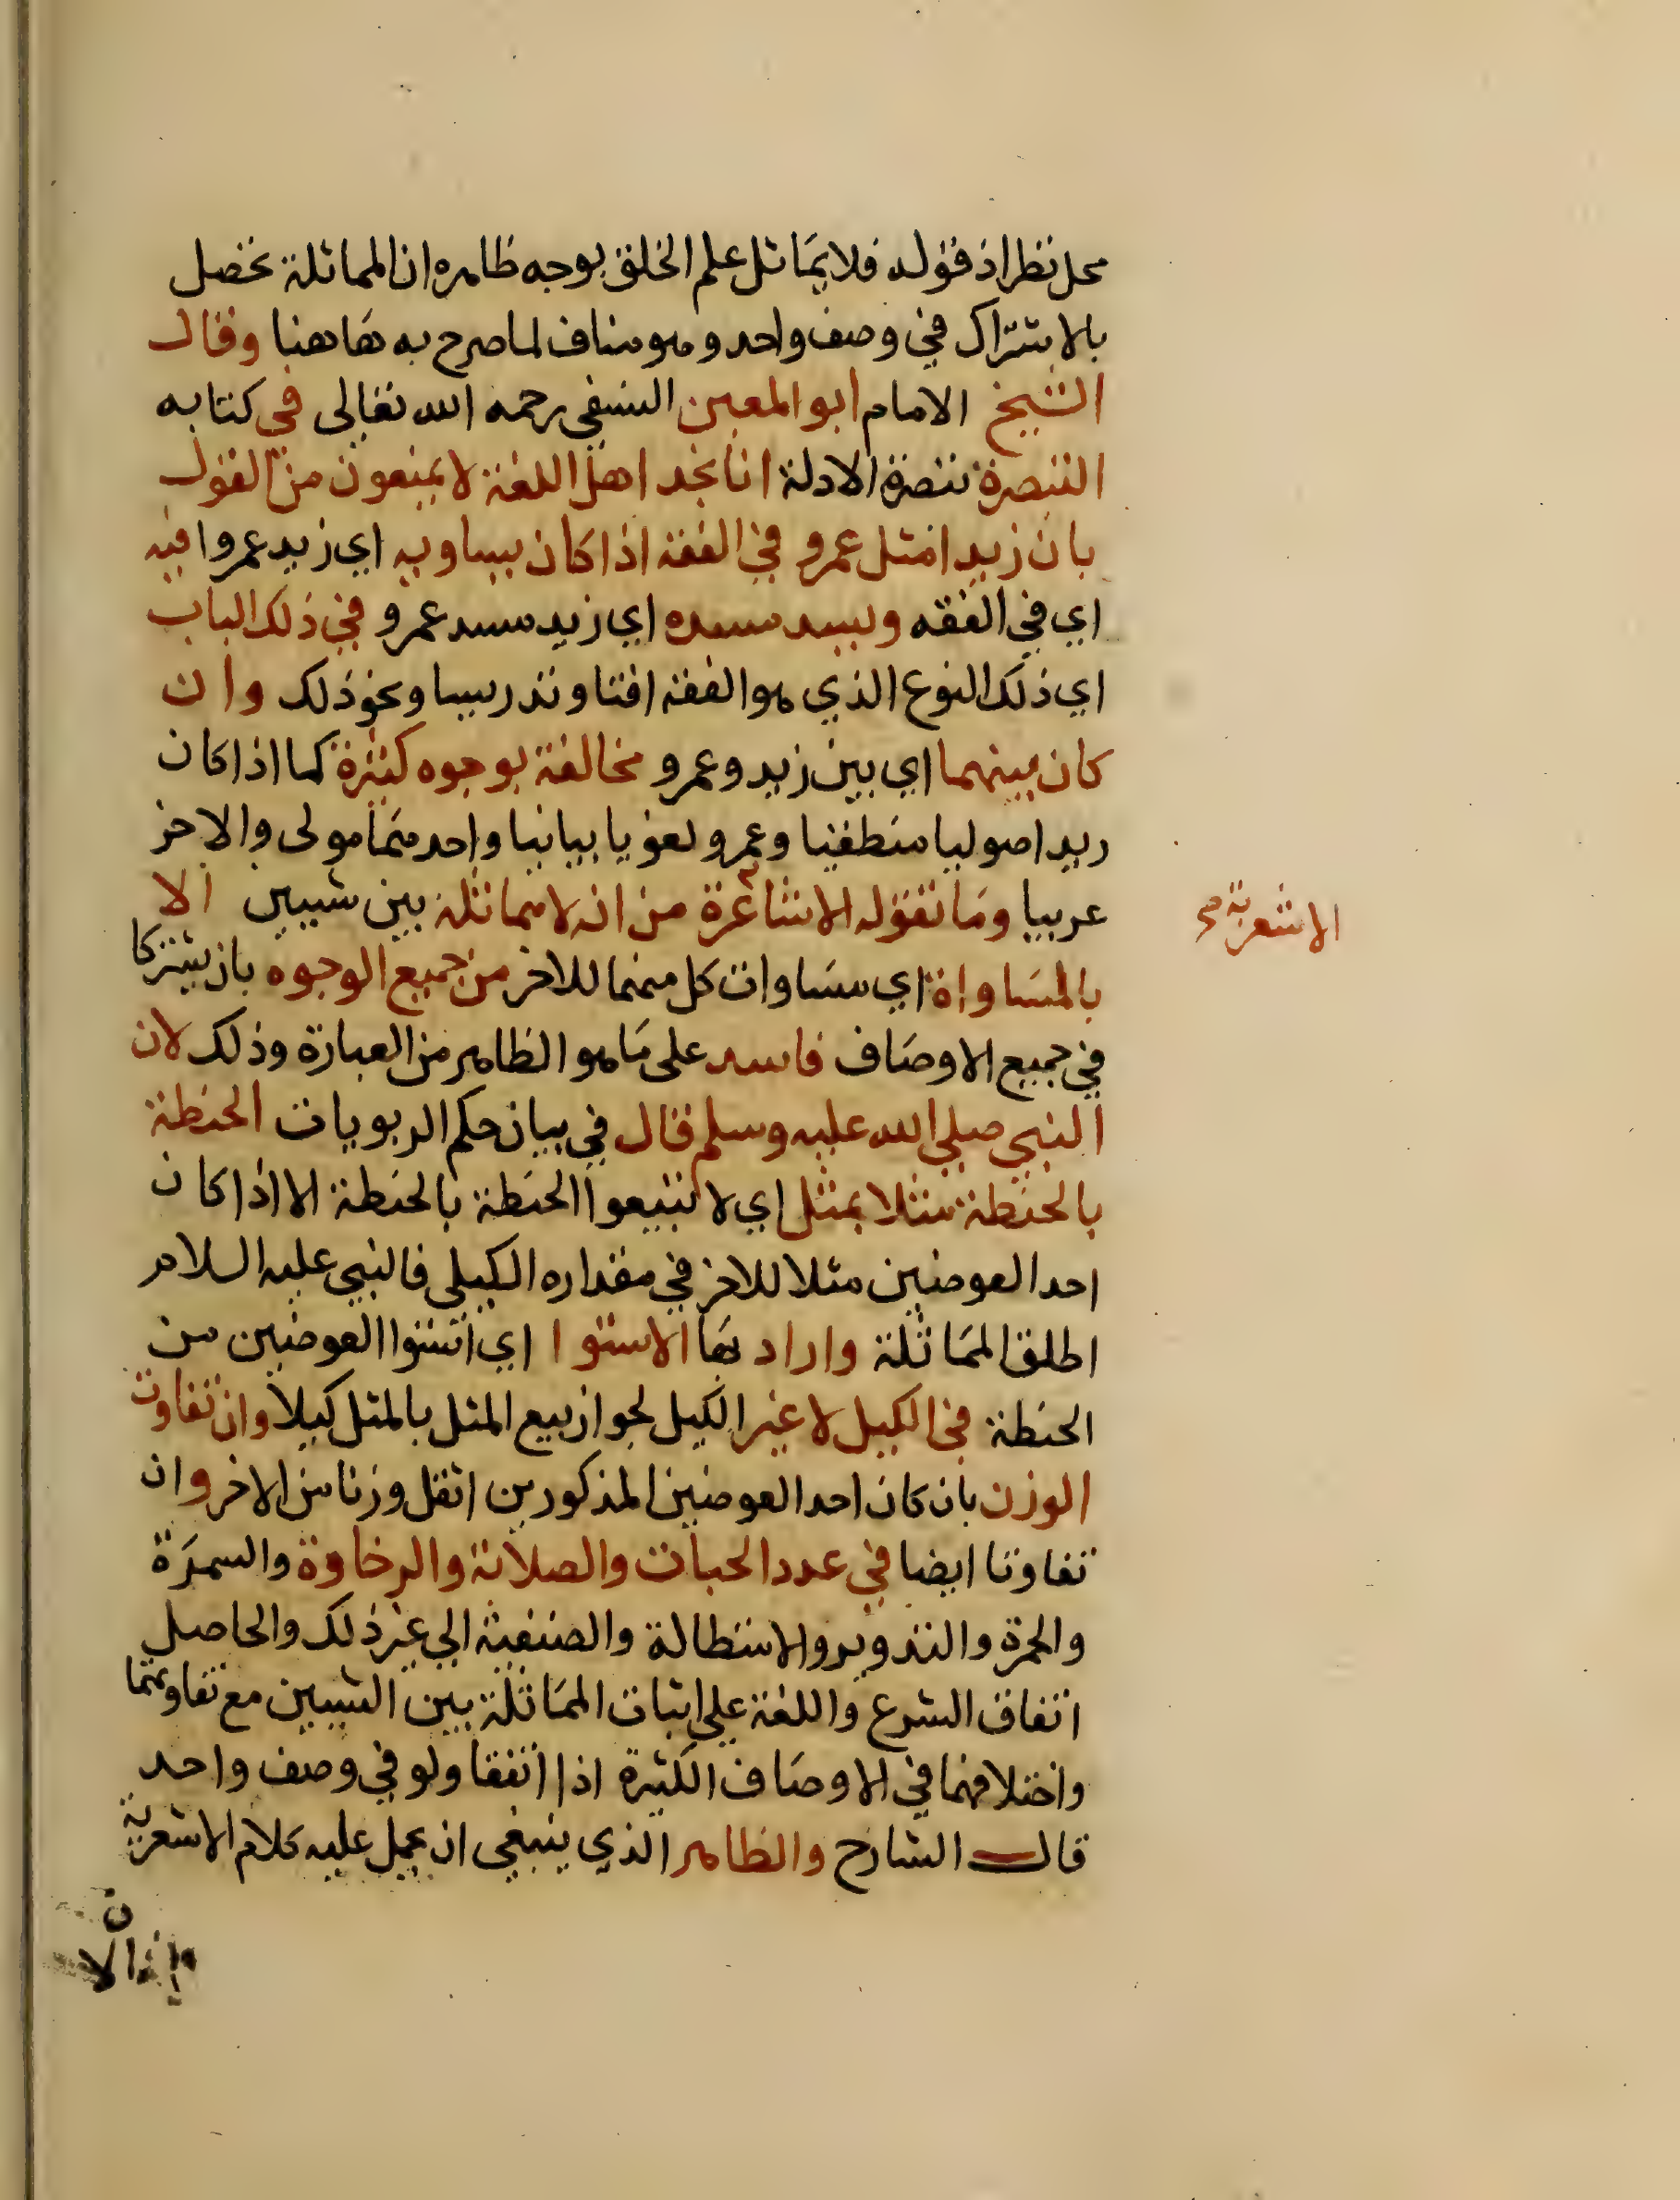 محل نظر اذ قوله فلا يماثل علم الخلق بوجه ظاهره ان المماثلة تحصل
بالاشتراك في وصف واحد وهو مناف لما صرح به هاهنا وقال
الشيخ الامام ابو المعين النسفي رحمه الله تعالى في كتابه
التبصرة تبصرة الادلة انا نجد اهل اللغة لا يمنعون من القول
بان زيدا مثل عمرو في الفقه اذا كان يساويه اي زيد عمروا فيه
اي في الفقه ويسد مسده اي زيد مسد عمرو في ذلك الباب
اي ذلك النوع الذي هو الفقه افتا وتدريسا ونحو ذلك وان
كان بينهما اي بين زيد وعمرو مخالفة بوجوه كثيرة كما اذا كان
زيد اصوليا منطقيا وعمرو لغويا بيانيا واحد منهما مولى والاخر
عربيا وما تقوله الاشاعرة من انه لا مماثلة بين شيين الا
الاشعرية صح
بالمساواة اي مساوات كل منهما للاخر من جميع الوجوه بان يشتركا
في جميع الاوصاف فاسد على ما هو الظاهر من العبارة وذلك لان
النبي صلى الله عليه وسلم قال في بيان حكم الربويات الحنطة
بالحنطة مثلا بمثل اي لا تبيعوا الحنطة بالحنطة الا اذا كان
احد العوضين مثلا للاخر في مقداره الكيلي فالنبي عليه السلام
اطلق المماثلة واراد بها الاستوا اي استوا العوضين من
الحنطة في الكيل لا غير الكيل لجواز بيع المثل بالمثل كيلا وان تفاوت
الوزن بان كان احد العوضين المذكورين اثقل وزنا من الاخر وان
تفاوتا ايضا في عدد الحبات والصلابة والرخاوة والسمرة
والحمرة والتدوير والاستطالة والصنفية الى غير ذلك والحاصل
اتفاق الشرع واللغة على اثبات المماثلة بين الشيين مع تفاوتهما
واختلافهما في الاوصاف الكثيرة اذا اتفقا ولو في وصف واحد
قال الشارح والظاهر الذي ينبغي ان يحمل عليه كلام الاشعرية